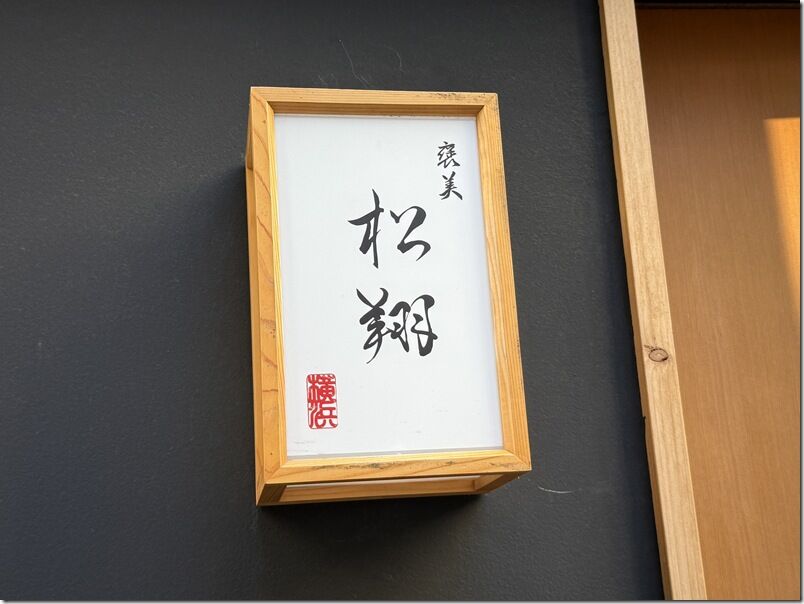 褒美
松翔
横浜